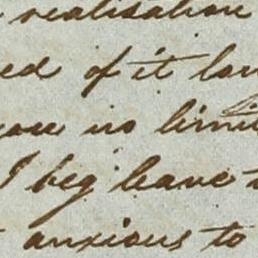 realisation
ed of it
you no limit
I beg leave
anxious to